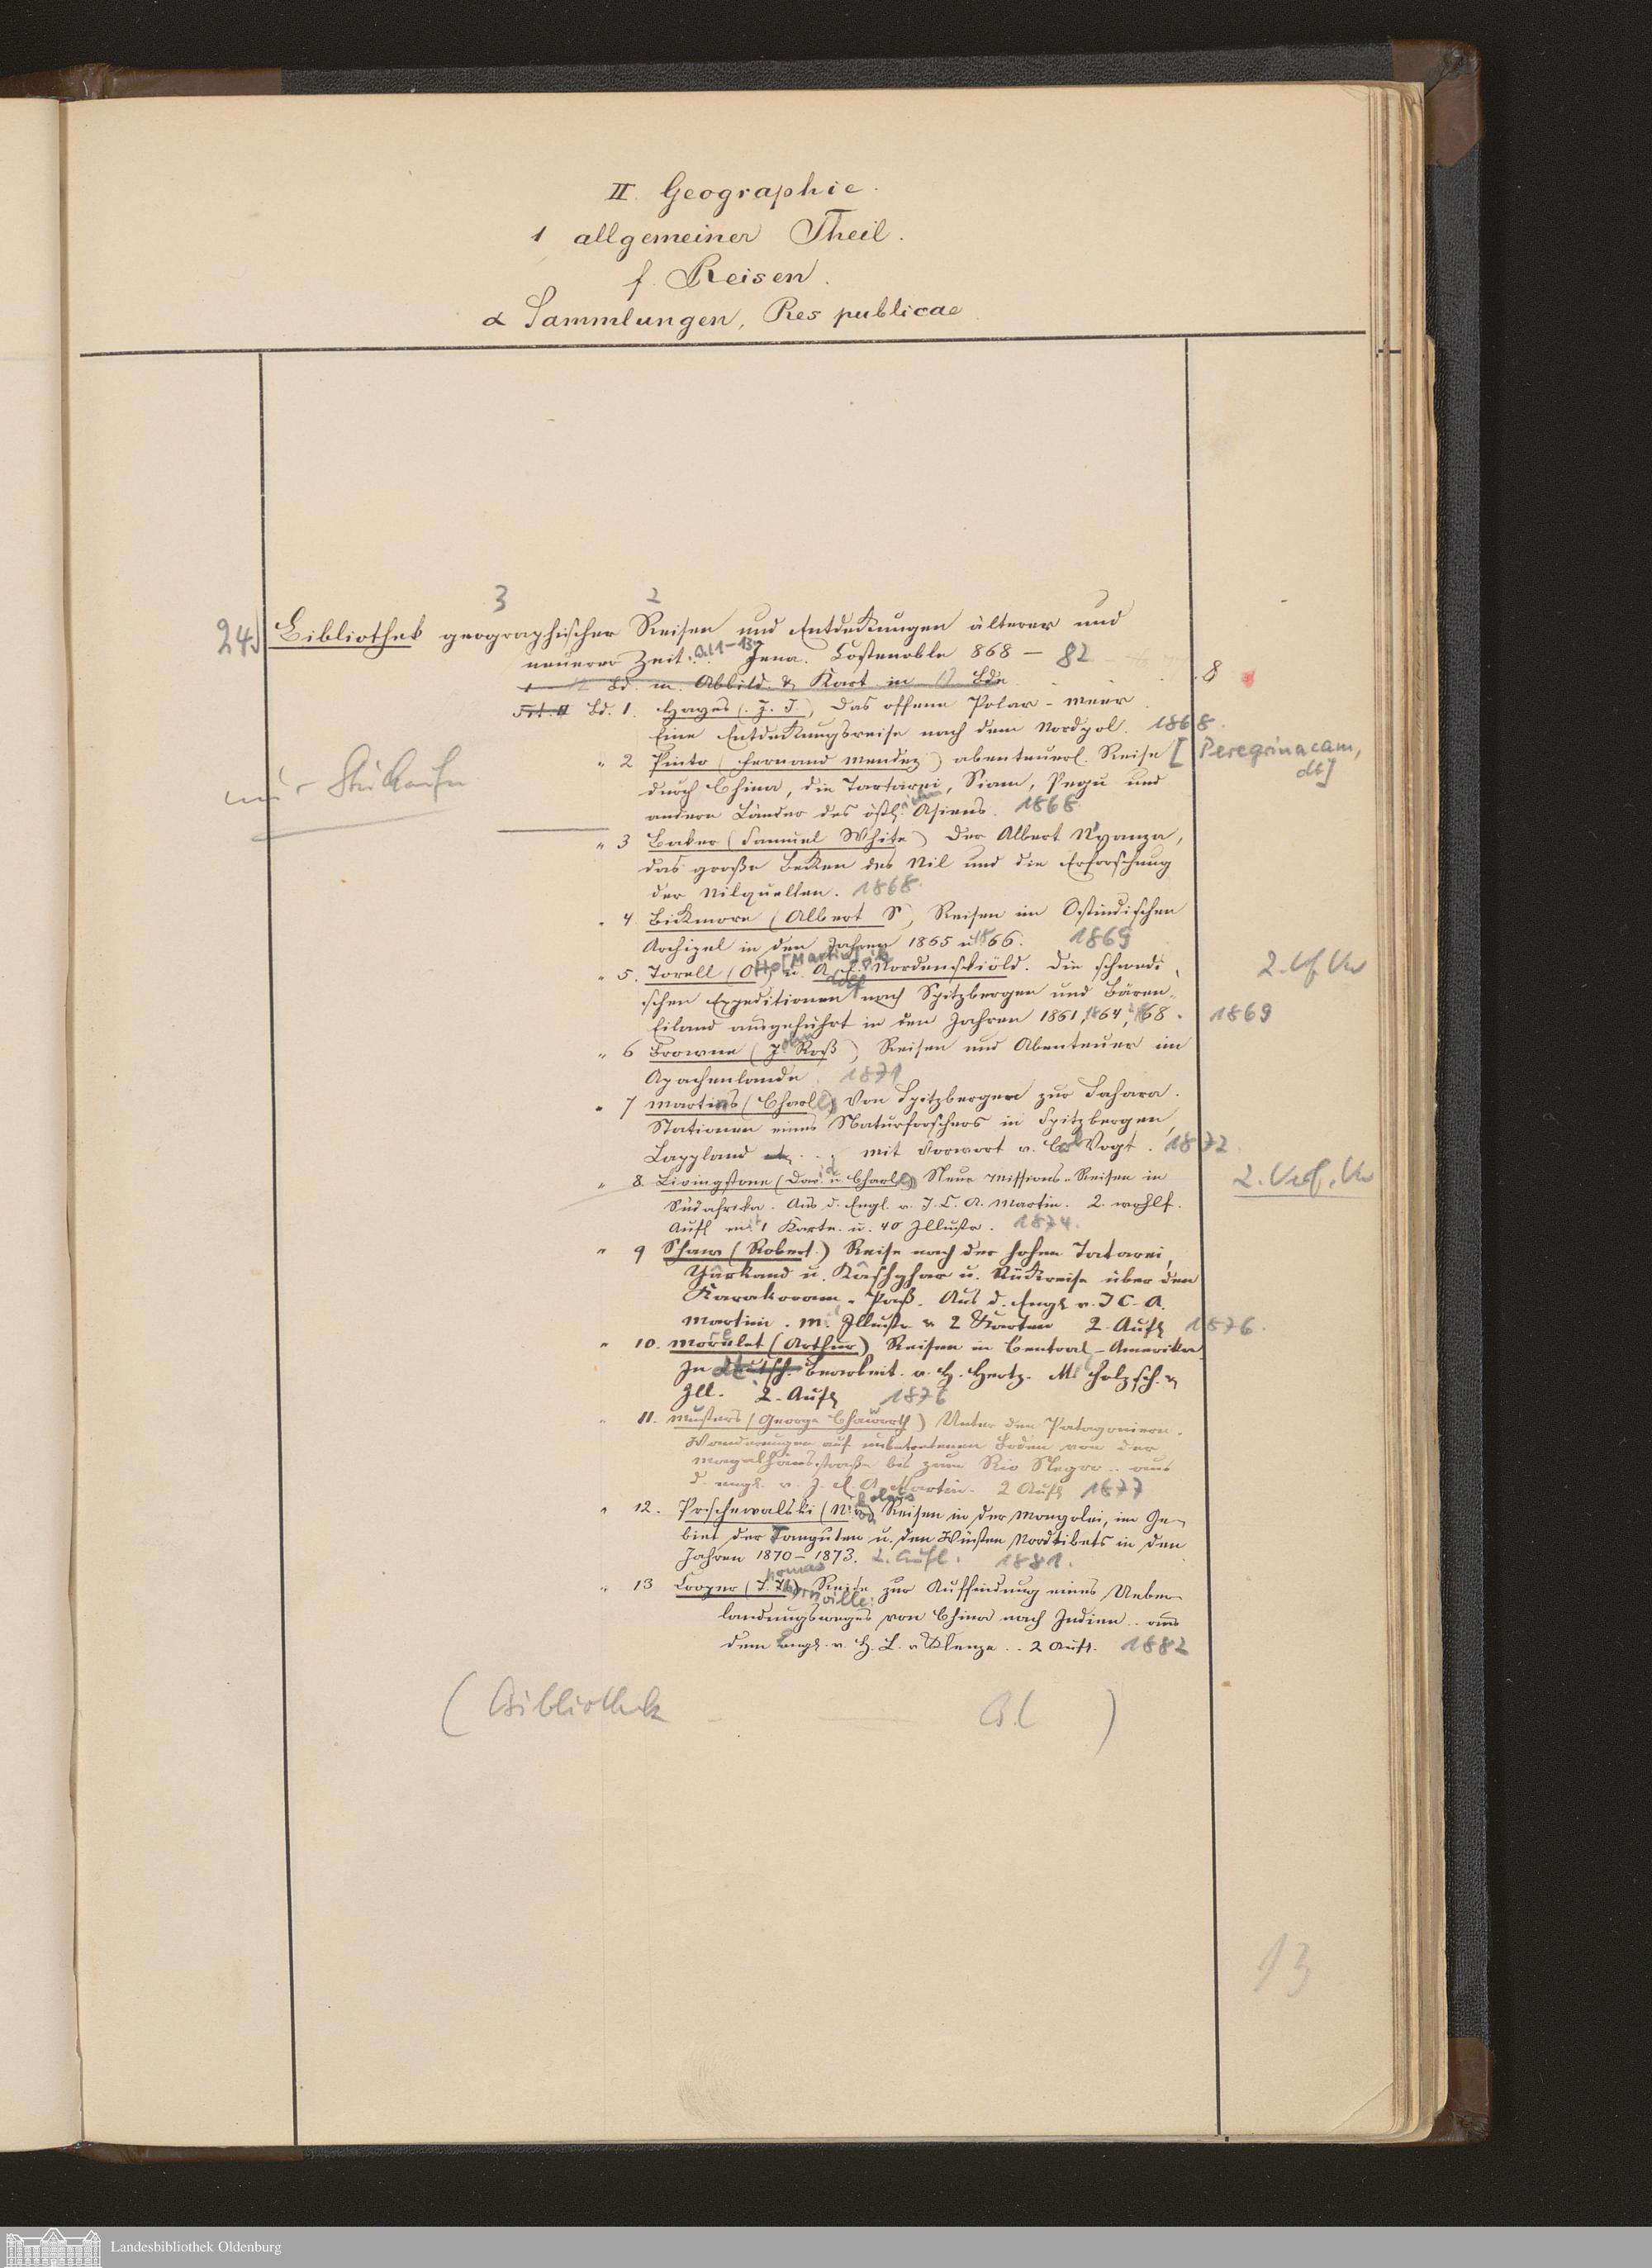 II. Geographie.
1 allgemeiner Theil.
f. Reisen.
α Sammlungen, Res publicae
3 2
24) Bibliothek geographischer Reisen und Entdeckungen älterer und
neuerer Zeit. Bd. 1-13 Jena. Costenoble 868 - 82
1 - 12 Bd. m. Abbild. & Kart in 12 Bde 8
Bd. 1. Hayes (J. J.) Das offene Polar-meer
Eine Entdeckungsreise nach dem Nordpol. 1868.
" 2 Pinto (Fernand Mendez) abenteuerl. Reise [Peregrinacam,
dt]
durch China, die Tartarei, Siam, Pegu und
andere Länder des östlichen Asiens. 1868
" 3 Baker (Samuel White) Der Albert N'yanza,
das große Becken des Nil und die Erforschung
der Nilquellen. 1868.
" 4. Bickmore (Albert S) Reisen im Ostindischen
Archipel in den Jahren 1865 u 1866. 1869
" 5. Torell (Otto [Martin]) u. Adolf Erik Nordenskiöld. Die schwedi
schen Expeditionen nach Spitzbergen und Bären-
Eiland ausgeführt in den Jahren 1861, 1864, 1868. 1869
2. Vf. Vw
" 6 Browne (John Roß) Reisen und Abenteuer im
Apachenlande. 1871
" 7 Martins (Charles) Von Spitzbergen zur Sahara.
Stationen eines Naturforschers in Spitzbergen,
Lappland etc. . . mit Vorwort v. Carl Vogt. 1872
" 8. Livingstone (David u. Charles) Neue Missions-Reisen in
2. Verf. Vw
Südafrika. Aus d. Engl. v. J. E. A. Martin. 2. wohlf.
Aufl mit 1 Karte. u. 40 Illustr. 1874.
" 9 Shaw (Robert) Reise nach der hohen Tatarei,
Yârkand u. Kâshghar u. Rückreise über den
Karakoram-Paß. Aus d. Engl v. J E. A.
Martin. mit Illustr u 2 Karten 2 Aufl 1876.
" 10. Morelet (Arthur) Reisen in Central-Amerika
In dt. Bearbeit. v. H. Hertz. Mit Holzsch. u
Ill. 2. Aufl 1876
" 11. Musters (George Chaworth) Unter den Patagoniern.
Wanderungen auf unbetretenem Boden von der
Magalhãesstraße bis zum Rio Negro .. aus
d. engl. v. J. E. A. Martin. 2 Aufl 1877
" 12. Prschewalski (Nikolaus von) Reisen in der Mongolei, im Ge-
biet der Tanguten u. den Wüsten Nordtibets in den
Jahren 1870-1873. 2. Aufl. 1881.
" 13 Cooper (Thomas Thornville) Reise zur Auffindung eines Ueber-
landungsweges von China nach Indien .. aus
dem Engl. v. H. L. v Klenze .. 2 Aufl. 1882
(Bibliothek - Bl )
13
Landesbibliothek Oldenburg